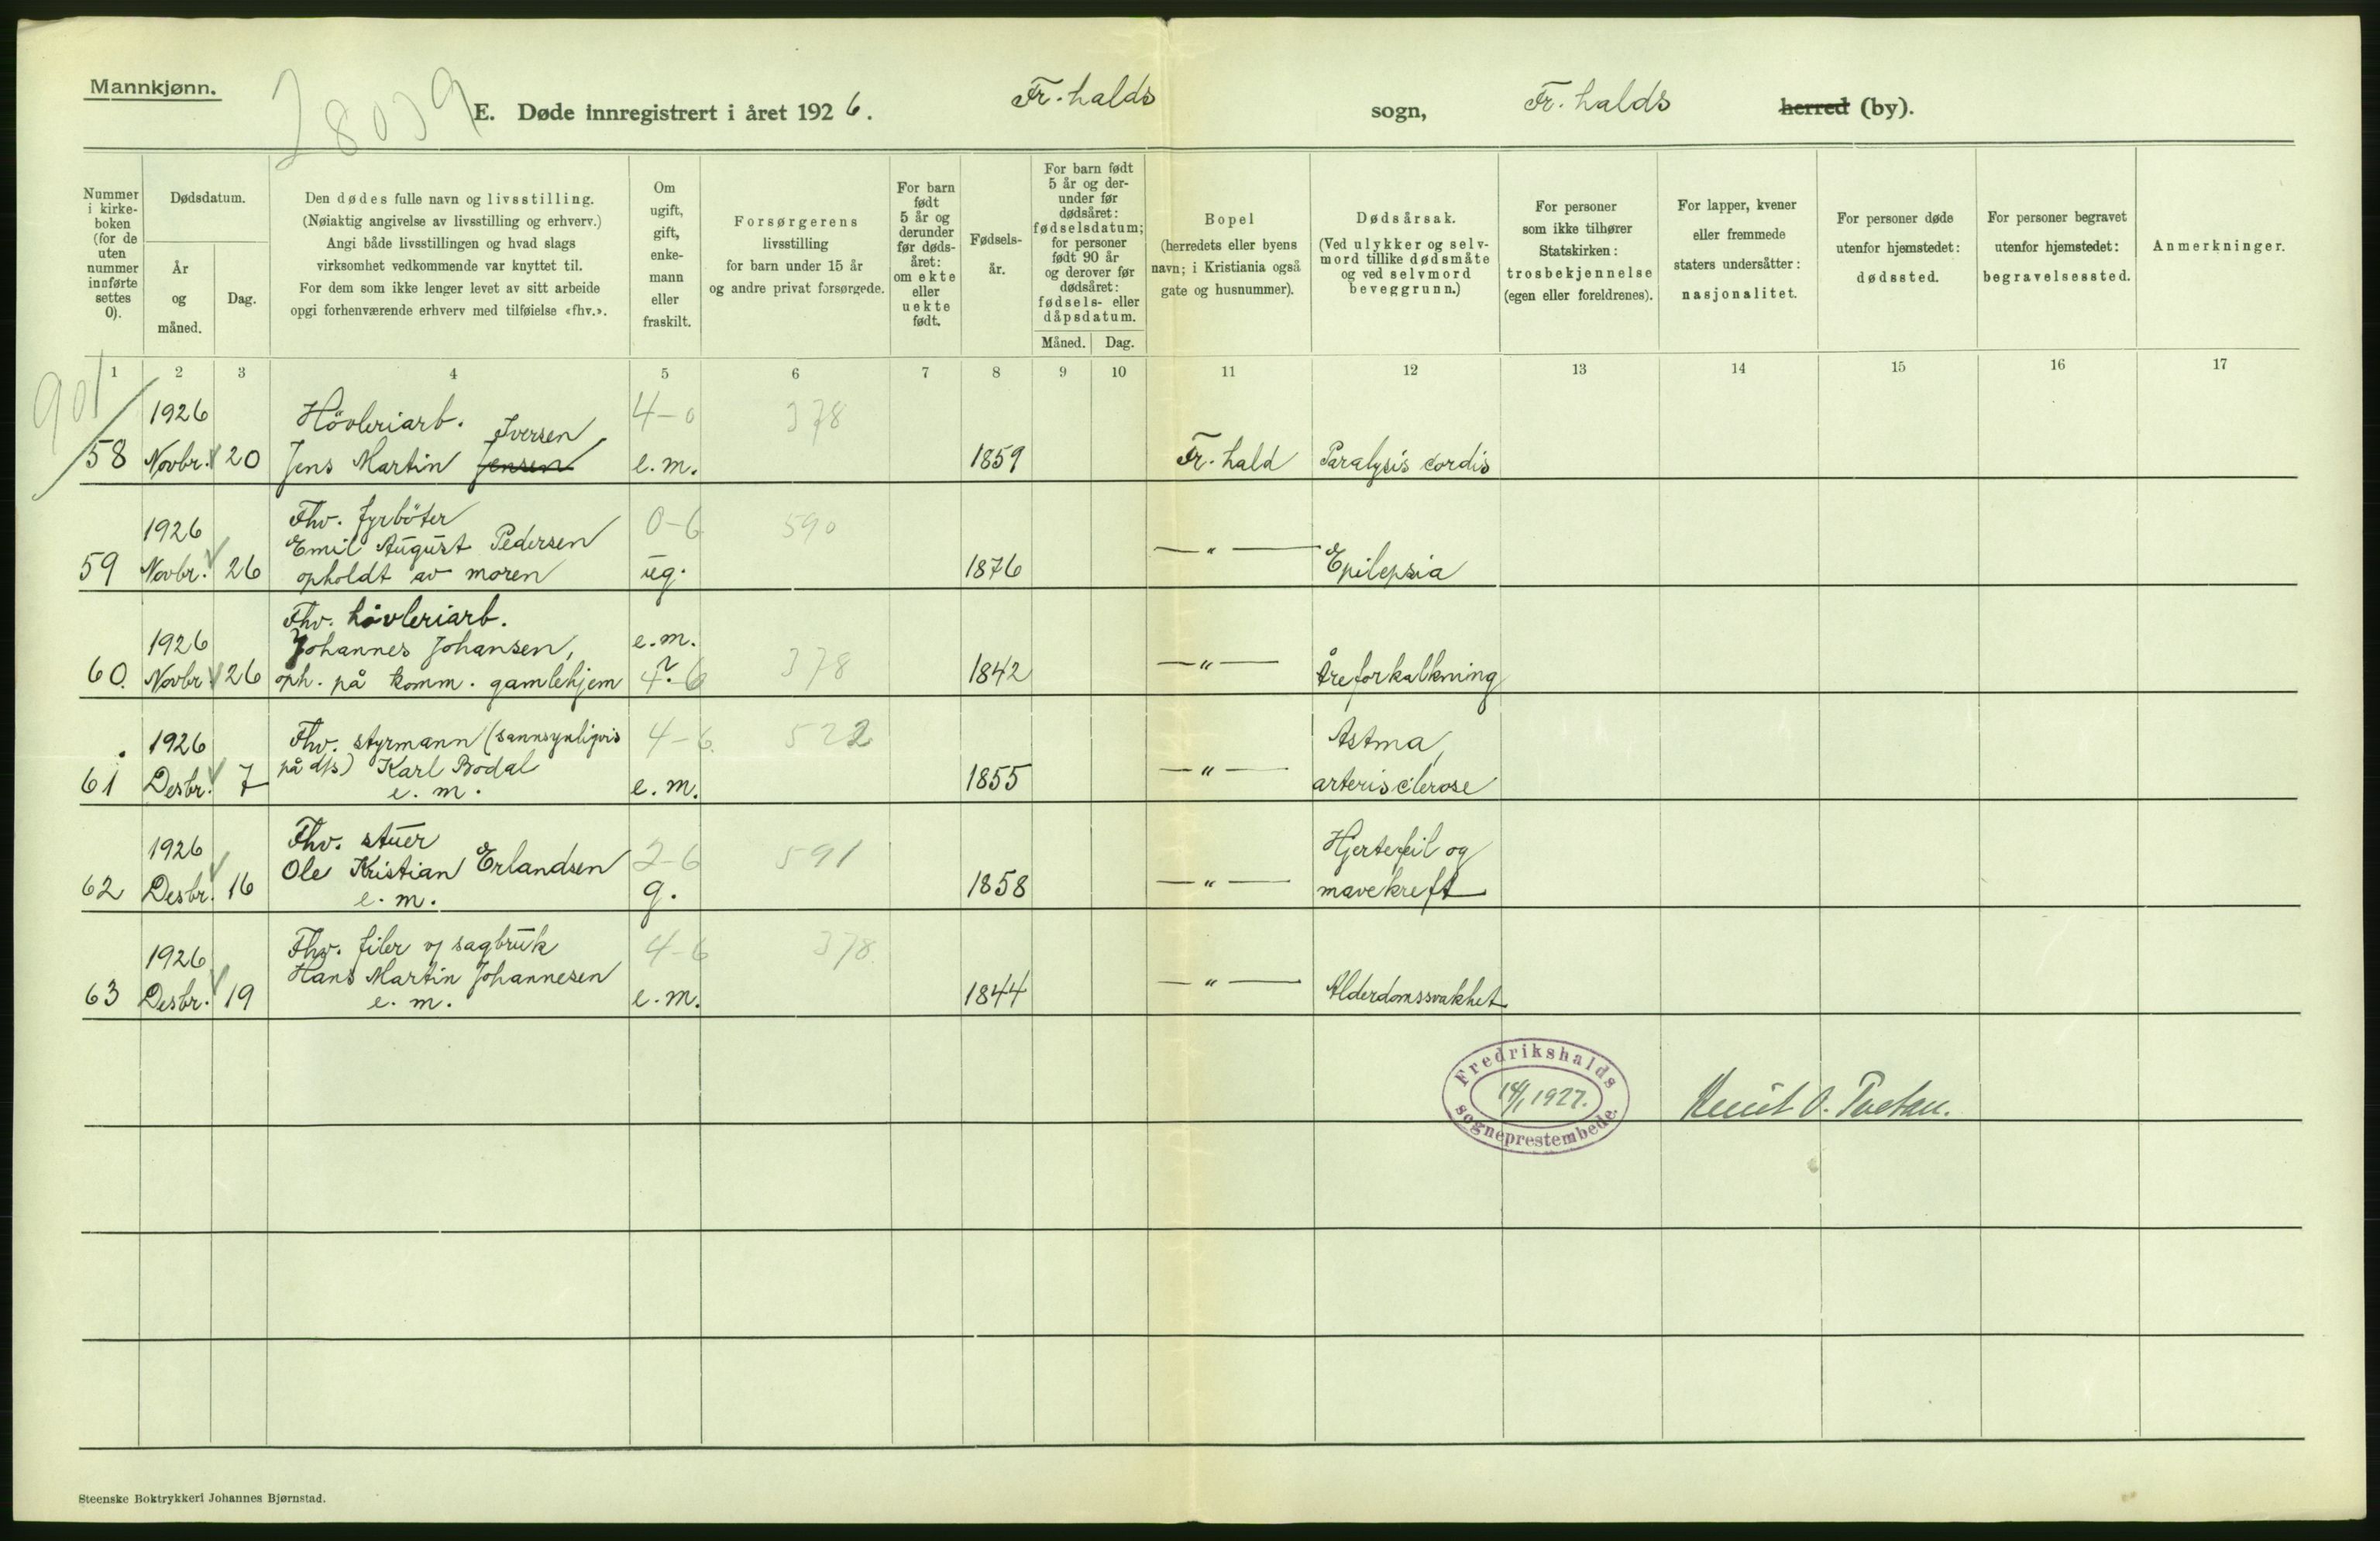 Mannkjønn.
28039
E. Døde innregistrert i året 1926.
Fr.halds sogn, Fr.halds herred (by).
Nummer i kirkeboken (for de uten nummer innførte settes 0).
Dødsdatum.
År og måned.
Dag.
Den dødes fulle navn og livsstilling.
(Nøiaktig angivelse av livsstilling og erhverv.)
Angi både livsstillingen og hvad slags
virksomhet vedkommende var knyttet til.
For dem som ikke lenger levet av sitt arbeide
opgi forhenværende erhverv med tilføielse «fhv.».
Om ugift, gift, enkemann eller fraskilt.
Forsørgerens
livsstilling
for barn under 15 år
og andre privat forsørgede.
For barn født 5 år og derunder før dødsåret: om ekte eller uekte født.
Fødselsår.
For barn født 5 år og derunder før dødsåret: fødselsdatum; for personer født 90 år og derover før dødsåret: fødsels- eller dåpsdatum.
Måned. Dag.
Bopel
(herredets eller byens
navn; i Kristiania også
gate og husnummer).
Dødsårsak.
(Ved ulykker og selvmord tillike dødsmåte og ved selvmord beveggrunn.)
For personer
som ikke tilhører
Statskirken:
trosbekjennelse
(egen eller foreldrenes).
For lapper, kvener
eller fremmede
staters undersåtter:
nasjonalitet.
For personer døde
utenfor hjemstedet:
dødssted.
For personer begravet
utenfor hjemstedet:
begravelsessted.
Anmerkninger.
1 2 3 4 5 6 7 8 9 10 11 12 13 14 15 16 17
901
1926 Hövleriarb. Iversen 4-0 378
58 Novbr. 20 Jens Martin Jensen e.m. 1859 Fr.hald Paralysis cordis
Fhv. fyrböter 0-6 590
1926 Emil August Pedersen
59 Novbr. 26 opholdt av moren ug. 1876 —"— Epilepsia
Fhv. hövleriarb.
1926 Johannes Johansen, e.m. 378
60. Novbr. 26 oph. på komm. gamlehjem 4-6 1842 —"— Åreforkalkning
1926 Fhv. styrmann (sannsynligvis 4-6. 522 Astma,
61 Desbr. 7 på d/s) Karl Bodal 1855 —"— arterisclerose
e.m. e.m.
1926 Fhv. stuer 2-6 591 Hjertefeil og
62 Desbr. 16 Ole Kristian Erlandsen 1858 —"— mavekreft
e.m. g.
1926 Fhv. filer v/ sagbruk 4-6 378.
Hans Martin Johannesen
63 Desbr. 19 e.m. e.m. 1844 —"— Alderdomssvakhet
Fredrikshalds
14/1 1927.
sogneprestembede
Knut O.
Steenske Boktrykkeri Johannes Bjørnstad.